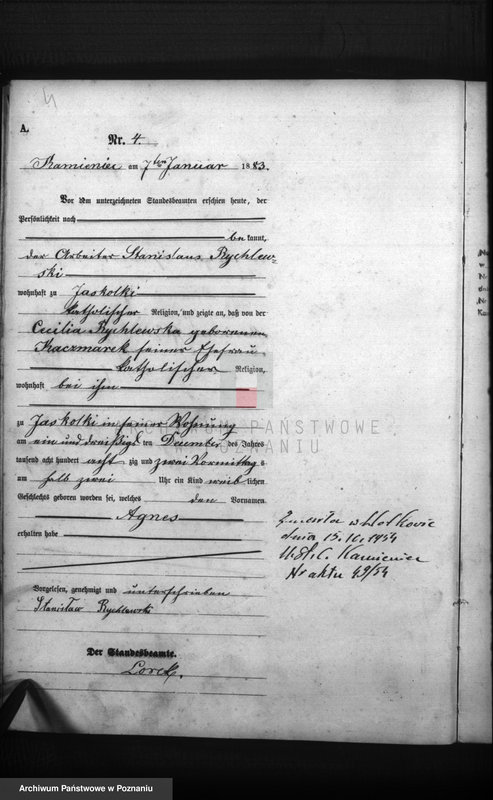 4
A.
Nr. 4.
Kamieniec am 7ten Januar 1883.
Vor dem unterzeichneten Standesbeamten erschien heute, der
Persönlichkeit nach
bekannt,
der Arbeiter Stanislaus Rychlew-
ski
wohnhaft zu Jaskolki
katholischer Religion, und zeigte an, daß von der
Cecilia Rychlewska geborenen
Kaczmarek seiner Ehefrau
katholischer Religion,
wohnhaft bei ihm
ARCHIWUM PAŃSTWOWE
W POZNANIU
zu Jaskolki in seiner Wohnung
am ein und dreißigsten December des Jahres
tausend acht hundert achtzig und zwei Vormittags
um halb zwei Uhr ein Kind weiblichen
Geschlechts geboren worden sei, welches den Vornamen
Agnes
erhalten habe
Zmarła w
dnia 15.10.1954
U.St.C. Kamieniec
Nr aktu 49/54
Vorgelesen, genehmigt und unterschrieben
Stanisław Rychlewski
Der Standesbeamte.
Archiwum Państwowe w Poznaniu